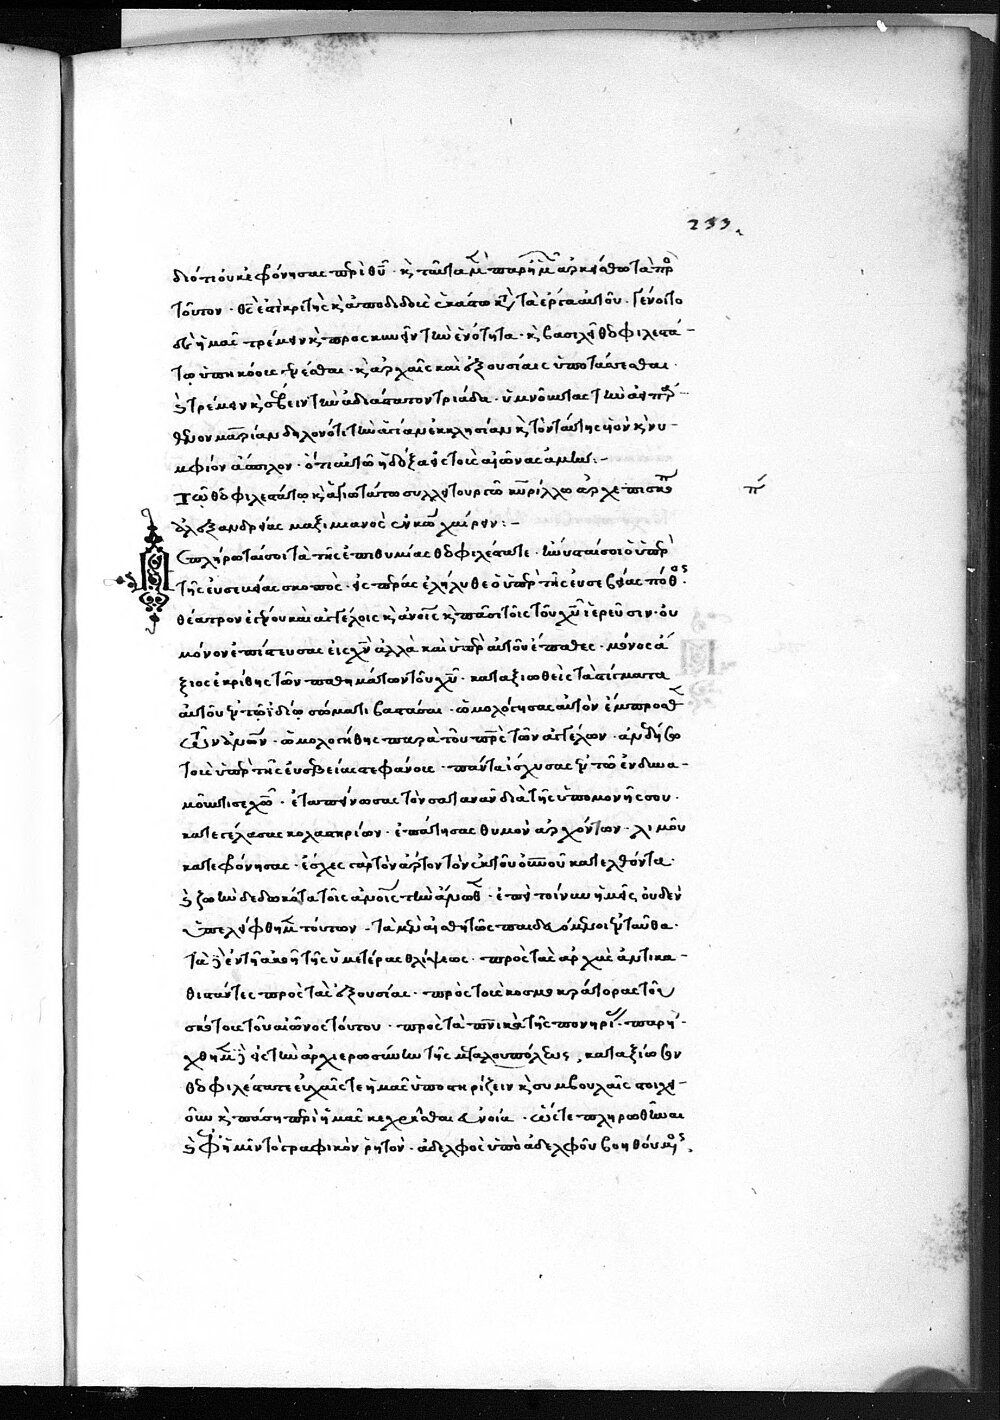 233
διότι οὐκ ἐφόνησας περὶ θῦ · κ ταῦτα μὲν παρ' ἡμῖν ἀρκείσθω τὰ πρ
τοῦτον · θς ὁ ἐπικριτὴς κ ἀποδιδοὺς ἑκάστω κτ τὰ ἔργα αὐτοῦ · γένοιτο
δὲ ἡμᾶς τρέμειν κ προσκυνεῖν τὴν ἑνότητα · κ βασιλεῖ θεοφιλεστά-
τω ὑπηκόους γενέσθαι · κ ἀρχαῖς καὶ ἐξουσίαις ὑποτάσσεσθαι ·
κ τρέμειν κ σέβειν τὴν ἀδιάστατον τριάδα · ὑμνοῦντας τὴν ἀειπάρ-
θενον μαρίαν δηλονότι τὴν ἁγίαν ἐκκλησίαν κ τὸν ταύτης υἱὸν κ νυ-
μφίον ἄσπιλον · ὅτι αὐτῶ ἡ δόξα εἰς τοὺς αἰῶνας ἀμήν :-
Τῶ θεοφιλεστάτω κ ἁγιωτάτω συλλειτουργῶ κυρίλλω ἀρχιεπισκόπω
ἀλεξανδρείας μαξιμιανὸς ἐν κω χαίρειν :-
π
επλήρωταί σοι τὰ τῆς ἐπιθυμίας θεοφιλέστατε · ἤνυσταί σοι ὁ ὑπὲρ
τῆς εὐσεβείας σκοπὸς · εἰς πέρας ἐλήλυθε ὁ ὑπὲρ τῆς εὐσεβείας πόθος ·
θέατρον ἐγένου καὶ ἀγγέλοις κ ἀνοις κ πᾶσι τοῖς τοῦ χυ ἱερεῦσιν · οὐ
μόνον ἐπίστευσας εἰς χν ἀλλὰ καὶ ὑπὲρ αὐτοῦ ἔπαθες · μόνος ἄ
ξιος ἐκρίθης τῶν παθημάτων τοῦ χυ · καταξιωθεὶς τὰ στίγματα
αὐτοῦ ἐν τῶ ἰδίω σώματι βαστάσαι · ὡμολόγησας αὐτὸν ἔμπροσθεν
τῶν ἀνων · ὡμολογήθης παρὰ τοῦ πρς ἐπὶ τῶν ἀγγέλων · ἀνεδήσω
τοὺς ὑπὲρ τῆς εὐσεβείας στεφάνους · πάντα ἴσχυσας ἐν τῶ ἐνδυνα-
μοῦντί σε χω · ἐταπείνωσας τὸν σατανᾶν διὰ τῆς ὑπομονῆς σου ·
κατεγέλασας κολαστηρίων · ἐπάτησας θυμὸν ἀρχόντων · λιμοῦ
κατεφόνησας · ἔσχες γὰρ τὸν ἄρτον τὸν ἐκ τοῦ οὐνοῦ κατελθόντα ·
κ ζωὴν δεδωκότα τοῖς ἀνοις τὴν ἄνωθεν · ἐπεὶ τοίνυν ἡμεῖς οὐδὲν
ὑπελείφθημεν τούτων · τὰ μὲν αἰσθητῶς παιδευόμενοι ἐνταῦθα ·
τὰ δὲ ἐν τῆ ἀκοῆ τῆς ὑμετέρας θλίψεως · πρὸς τὰς ἀρχὰς ἀντικα-
θιστάντες πρὸς τὰς ἐξουσίας · πρὸς τοὺς κοσμοκράτορας τοῦ
σκότους τοῦ αἰῶνος τούτου · πρὸς τὰ πνικὰ τῆς πονηρίας · παρή-
χθημεν δὲ εἰς τὴν ἀρχιερωσύνην τῆς μεγαλουπόλεως, καταξίωσον
θεοφιλέστατε εὐχαῖς τε ἡμᾶς ὑποστηρίζειν κ συμβουλαῖς στοιχει-
οῦν κ πάση περὶ ἡμᾶς κεχρῆσθαι εὐνοία · ὥστε πληρωθῆναι
κ ἐφ' ἡμῖν τὸ γραφικὸν ῥητὸν · ἀδελφὸς ὑπὸ ἀδελφοῦ βοηθούμενος ·